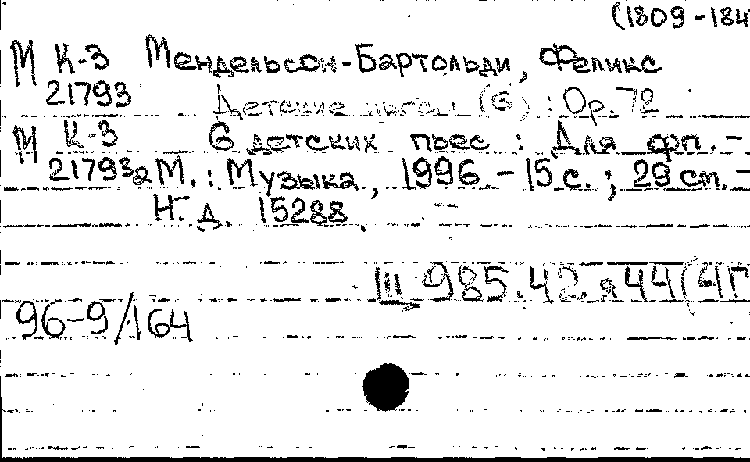 (1809-184
М К-3 Мендельсон-Бартольди, Феликс
21793 Детские пьесы (6) : Op. 72
М К-3 6 детских пьес : Для фп. -
21793а М. : Музыка, 1996. - 15 с. ; 29 см. -
Н. д. 15288. -
Ш 985.42.я44(4Г
96-9/164